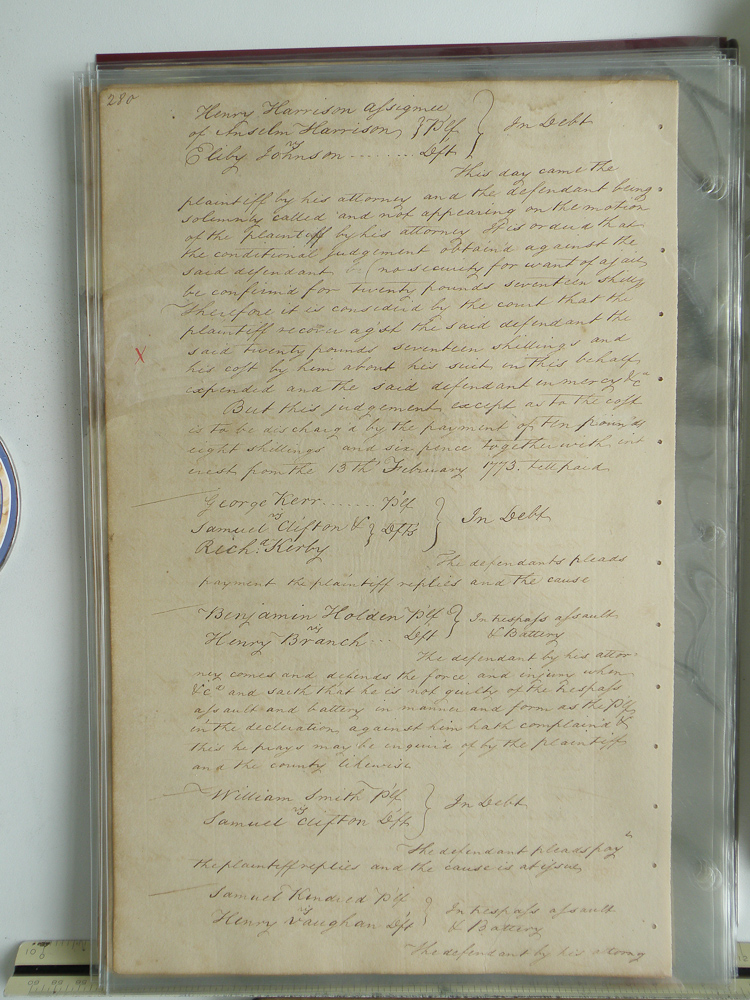 280
Henry Harrison assignee
of Anselm Harrison } Plf } In Debt
vs
Eleby Johnson ........ Deft
This day came the
plaintiff by his attorney and the defendant being
solemnly called and not appearing on the motion
of the plaintiff by his attorney It is ordered that
the conditional Judgement obtaind against the
said defendant (no security for want of
be confirmd for twenty pounds seventeen shillgs
Therefore it is considerd by the court that the
plaintiff recover agst the said defendant the
X said twenty pounds seventeen shillings and
his cost by him about his suit in this behalf
expended and the said defendant in mercy &ca
But this judgement except as to the cost
is to be dischargd by the payment of ten pounds
eight shillings and six pence together with int
erest from the 13th February 1773. till paid
George Kerr ...... Plf
vs
Samuel Clifton & } Defts } In Debt
Richd. Kerby
The defendants pleads
payment the plaintiff replies and the cause
Benjamin Holden Plf } In trespass assault
vs
Henry Branch ... Deft & Battery
The defendant by his attor-
ney comes and defends the force and injury when
&ca and saith that he is not guilty of the trespass
assault and battery in manner and form as the Plf
in the decleration against him hath complaind &
this he prays may be enquird of by the plaintiff
and the county likewise
William Smith Plf } In Debt
vs
Samuel Clifton Deft
The defendant pleads pay
the plaintiff replies and the cause is at issue
Samuel Kindred Plf } In trespass assault
vs
Henry Vaughan Deft & Battery
The defendant by his attorny